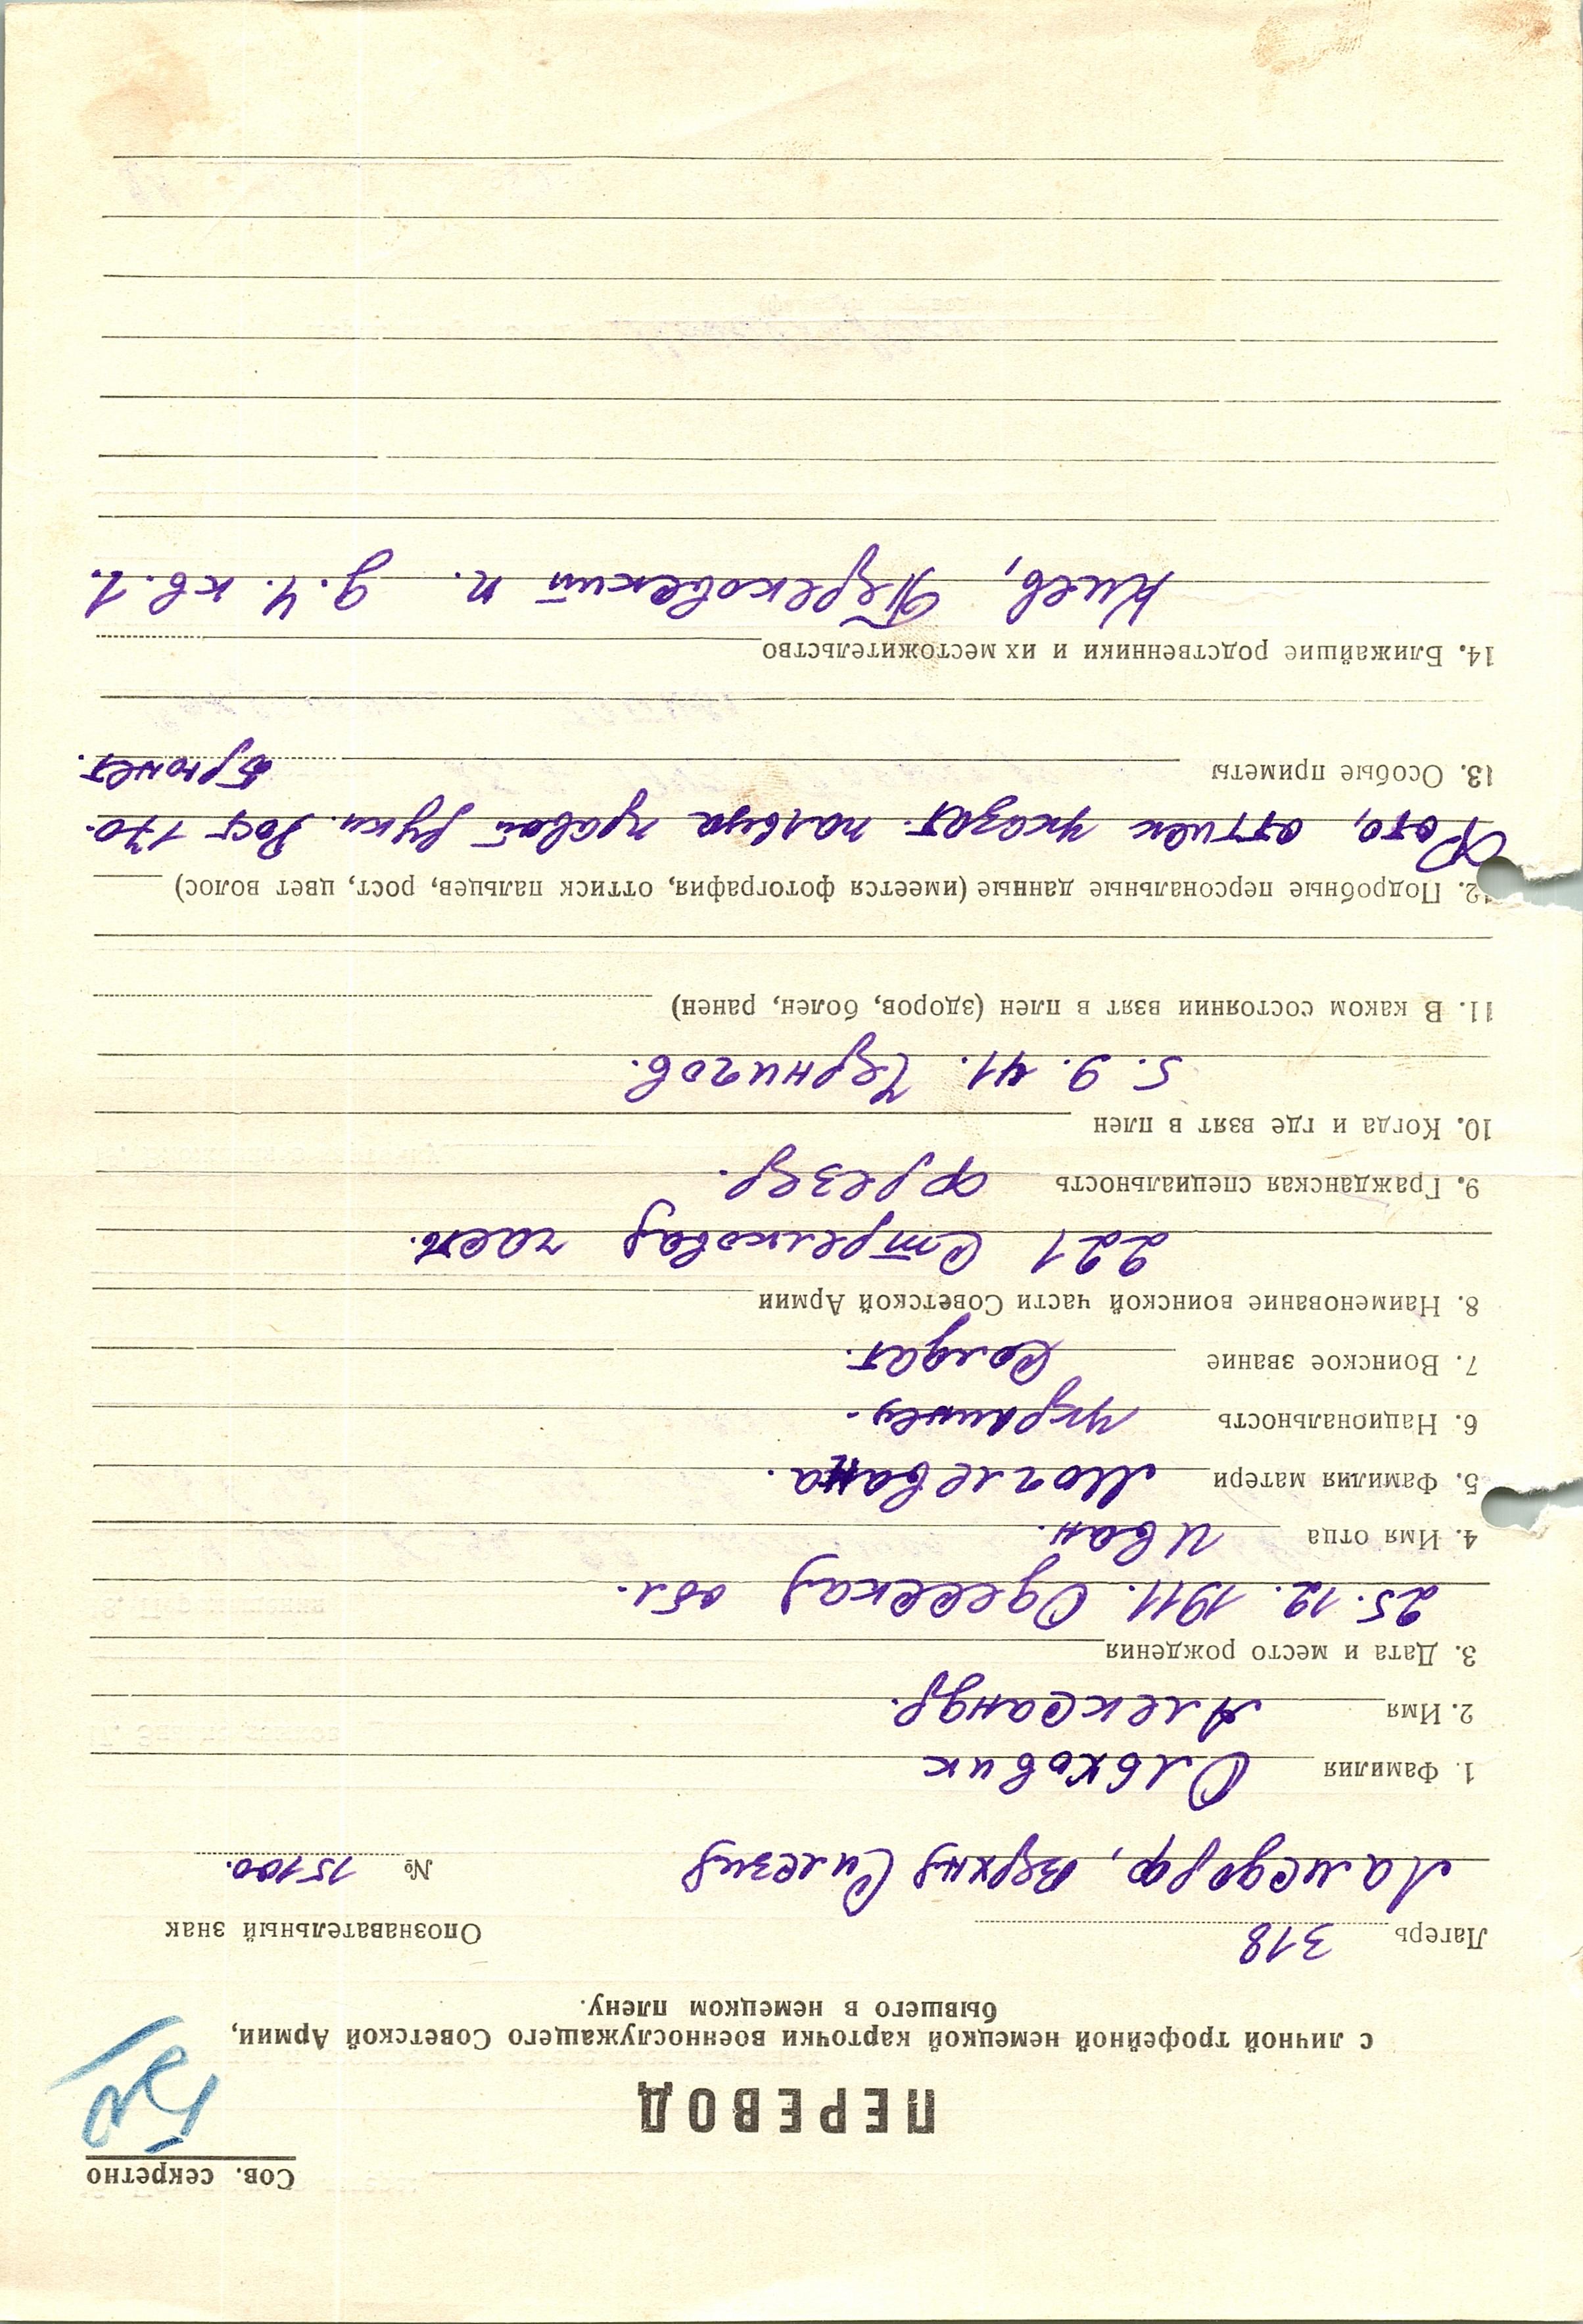 Сов. секретно
ПЕРЕВОД
с личной трофейной немецкой карточки военнослужащего Советской Армии,
бывшего в немецком плену.
Лагерь 318 Опознавательный знак
Ламсдорф, Верхняя Силезия № 15100.
1. Фамилия Ольховик
2. Имя Александр.
3. Дата и место рождения
25.12.1911. Одесская обл.
4. Имя отца Иван.
5. Фамилия матери
6. Национальность
7. Воинское звание Солдат.
8. Наименование воинской части Советской Армии
221 Стрелковая част.
9. Гражданская специальность фрезер.
10. Когда и где взят в плен
5.9.41. Чернигов.
11. В каком состоянии взят в плен (здоров, болен, ранен)
12. Подробные персональные данные (имеется фотография, оттиск пальцев, рост, цвет волос)
Фото, оттиск указат. пальца правой руки. Рост 170.
Брюнет.
13. Особые приметы
14. Ближайшие родственники и их местожительство
Киев, п. д. 4. кв. 1.